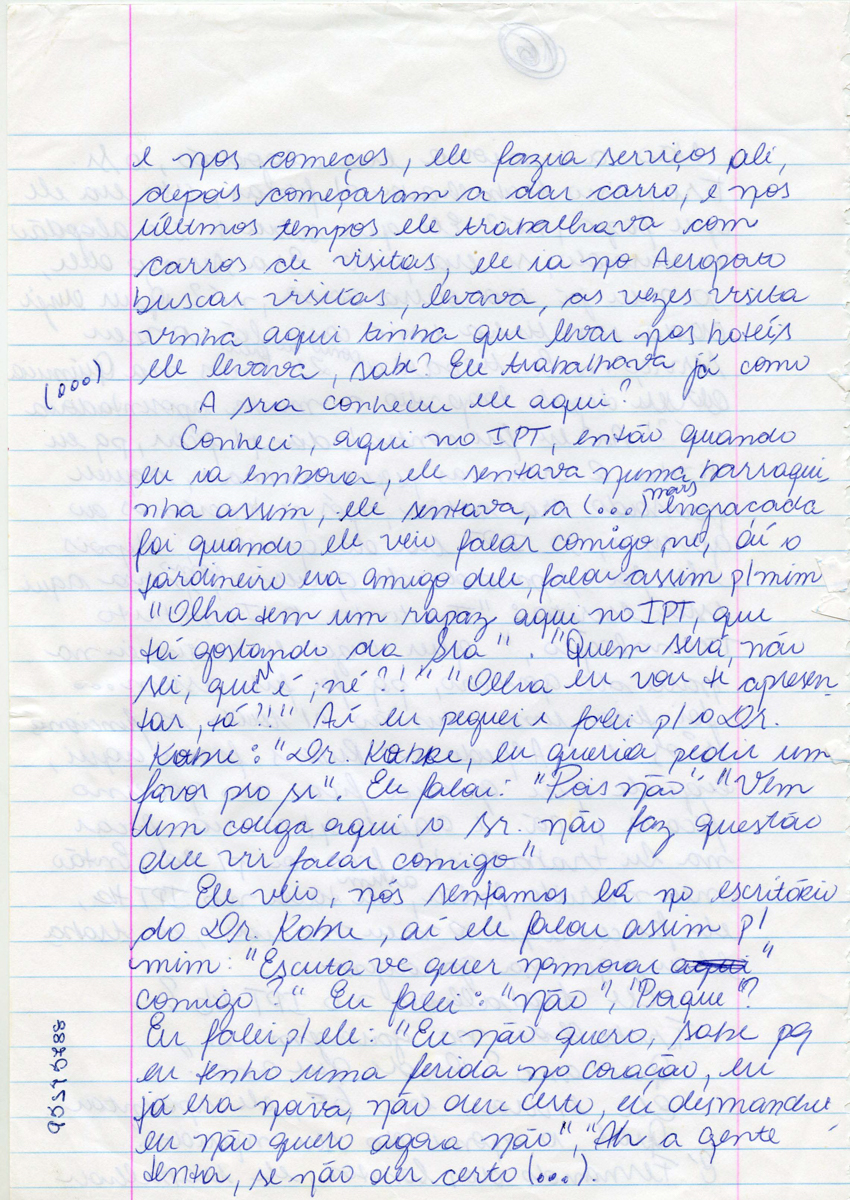 6
e nos começos, ele fazia serviços ali,
depois começaram a dar carro, e nos
últimos tempos ele trabalhava com
carros de visitas, ele ia no Aeroporto
buscar visitas, levava, as vezes visita
vinha aqui tinha que levar nos hotéis
ele levava, sabe? Eu trabalhava já como
(...)
A sra conheceu ele aqui?
Conheci, aqui no IPT, então quando
eu ia embora, ele sentava numa barraqui
nha assim, ele sentava, a (...) mais engraçada
foi quando ele veio falar comigo, né, aí o
jardineiro era amigo dele, falou assim p/ mim
"Olha tem um rapaz aqui no IPT, que
tá gostando da Sra". "Quem será, não
sei, quem é, né?!" "Olha eu vou te apresen-
tar, tá?!" Aí eu peguei e falei p/ o Dr.
Kobre: "Dr. Kobre, eu queria pedir um
favor pro sr". Ele falou: "Pois não" "Vem
um colega aqui o sr. não faz questão
dele vir falar comigo"
Ele veio, nós sentamos lá no escritório
do Dr. Kobre, aí ele falou assim p/
mim: "Escuta vc quer namorar aqui"
comigo?" Eu falei: "não", "Porque"?
Eu falei p/ ele: "Eu não quero, sabe pq
eu tenho uma ferida no coração, eu
já era noiva, não deu certo, eu desmanchei
eu não quero agora não", "Ah a gente
tenta, se não der certo (...).